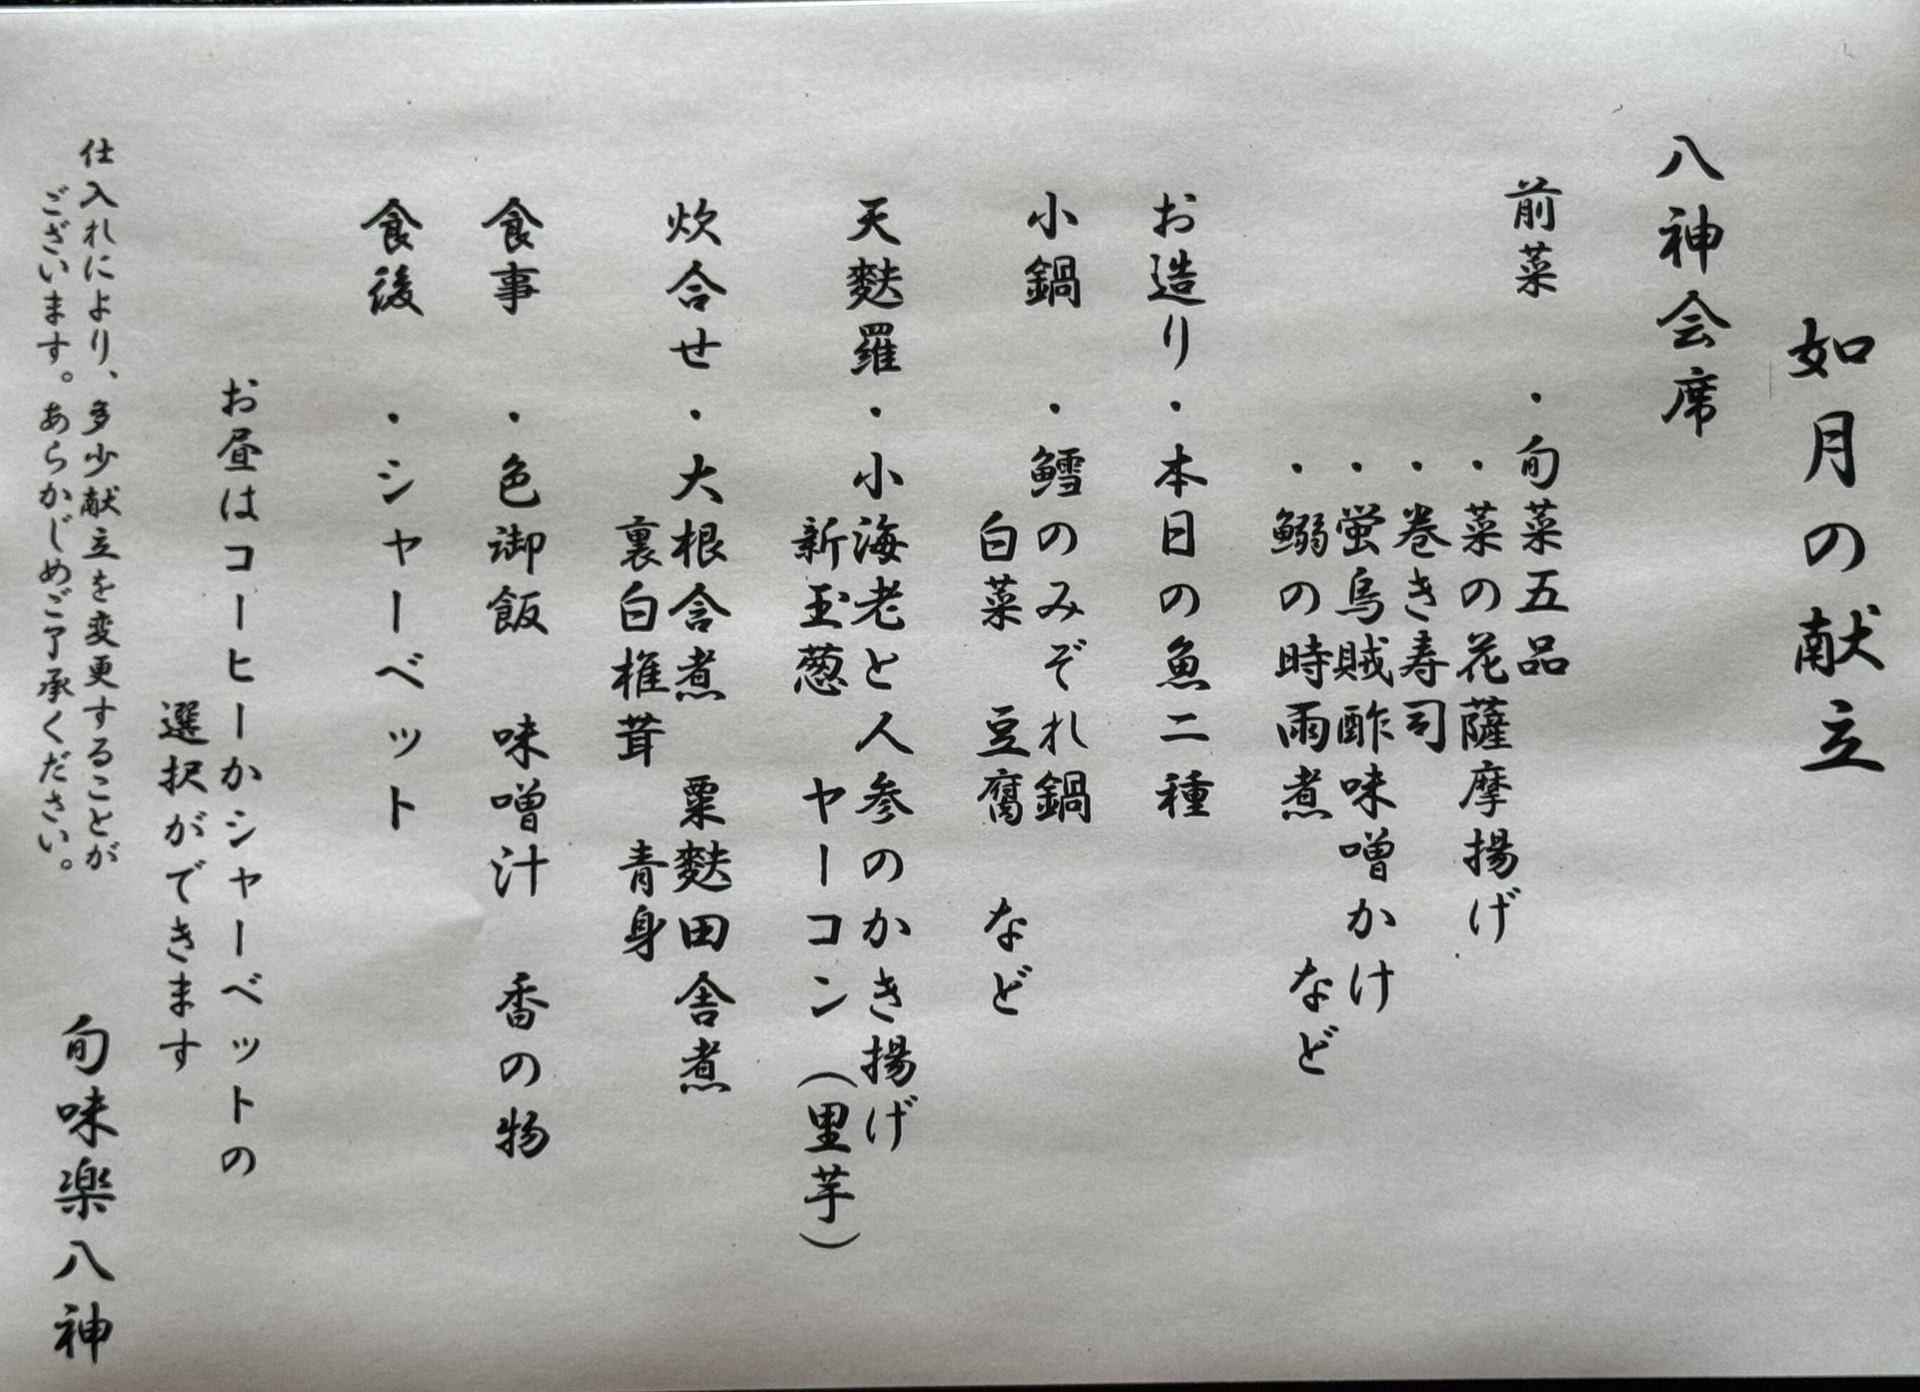 如月の献立
八神会席
前菜 ・旬菜五品
・菜の花薩摩揚げ
・巻き寿司
・蛍烏賊酢味噌かけ
・鰯の時雨煮 など
お造り・本日の魚二種
小鍋 ・鱈のみぞれ鍋
白菜 豆腐 など
天麩羅・小海老と人参のかき揚げ
新玉葱 ヤーコン（里芋）
炊合せ・大根含煮 粟麩田舎煮
裏白椎茸 青身
食事 ・色御飯 味噌汁 香の物
食後 ・シャーベット
お昼はコーヒーかシャーベットの
選択ができます
仕入れにより、多少献立を変更することが
ございます。あらかじめご了承ください。
旬味楽八神